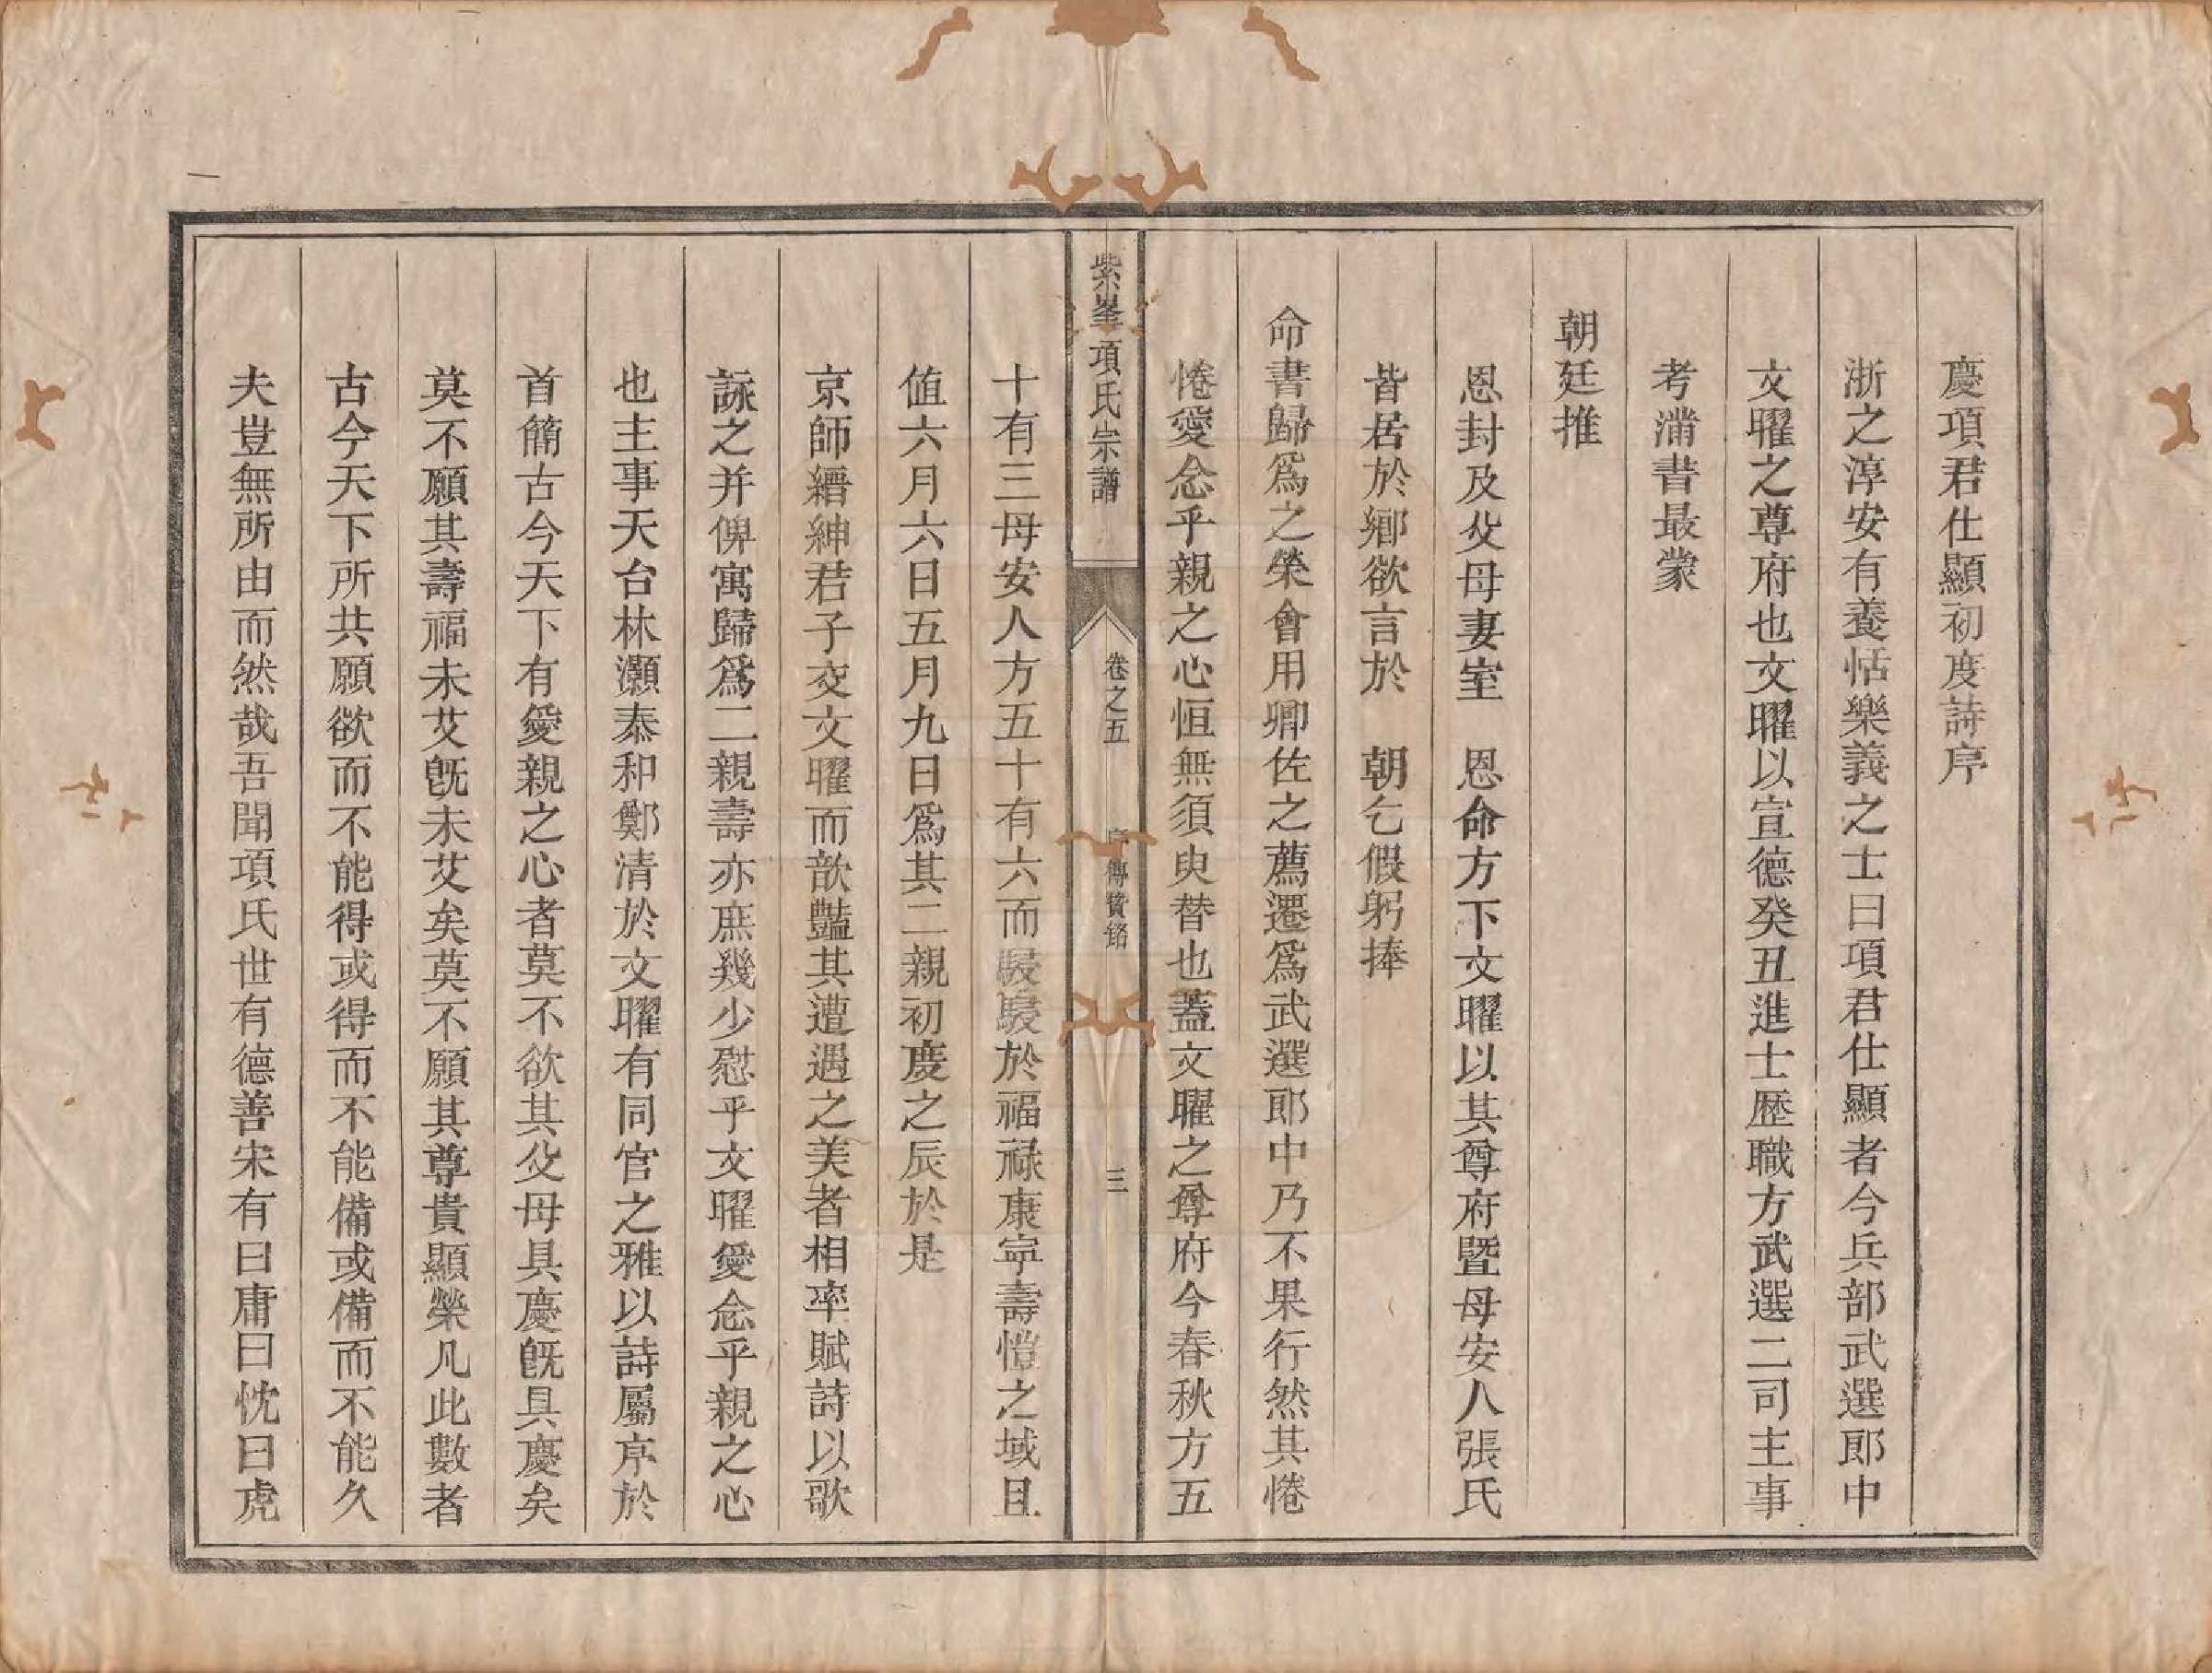 慶項君仕顯初度詩序
浙之淳安有養恬樂義之士曰項君仕顯者今兵部武選郎中
文曜之尊府也文曜以宣德癸丑進士歷職方武選二司主事
考滿書最蒙
朝廷推
恩封及父母妻室　恩命方下文曜以其尊府暨母安人張氏
皆居於鄉欲言於　朝乞假躬捧
命書歸爲之榮會用卿佐之薦遷爲武選郎中乃不果行然其惓
惓愛念乎親之心恒無須臾替也蓋文曜之尊府今春秋方五
紫峯項氏宗譜
卷之五
傳贊銘
三
十有三母安人方五十有六而駸駸於福祿康寧壽愷之域且
值六月六日五月九日爲其二親初慶之辰於是
京師縉紳君子交文曜而歆豔其遭遇之美者相率賦詩以歌
詠之并俾寓歸爲二親壽亦庶幾少慰乎文曜愛念乎親之心
也主事天台林灝泰和鄭清於文曜有同官之雅以詩屬序於
首簡古今天下有愛親之心者莫不欲其父母具慶旣具慶矣
莫不願其壽福未艾旣未艾矣莫不願其尊貴顯榮凡此數者
古今天下所共願欲而不能得或得而不能備或備而不能久
夫豈無所由而然哉吾聞項氏世有德善宋有曰庸曰忱曰虎